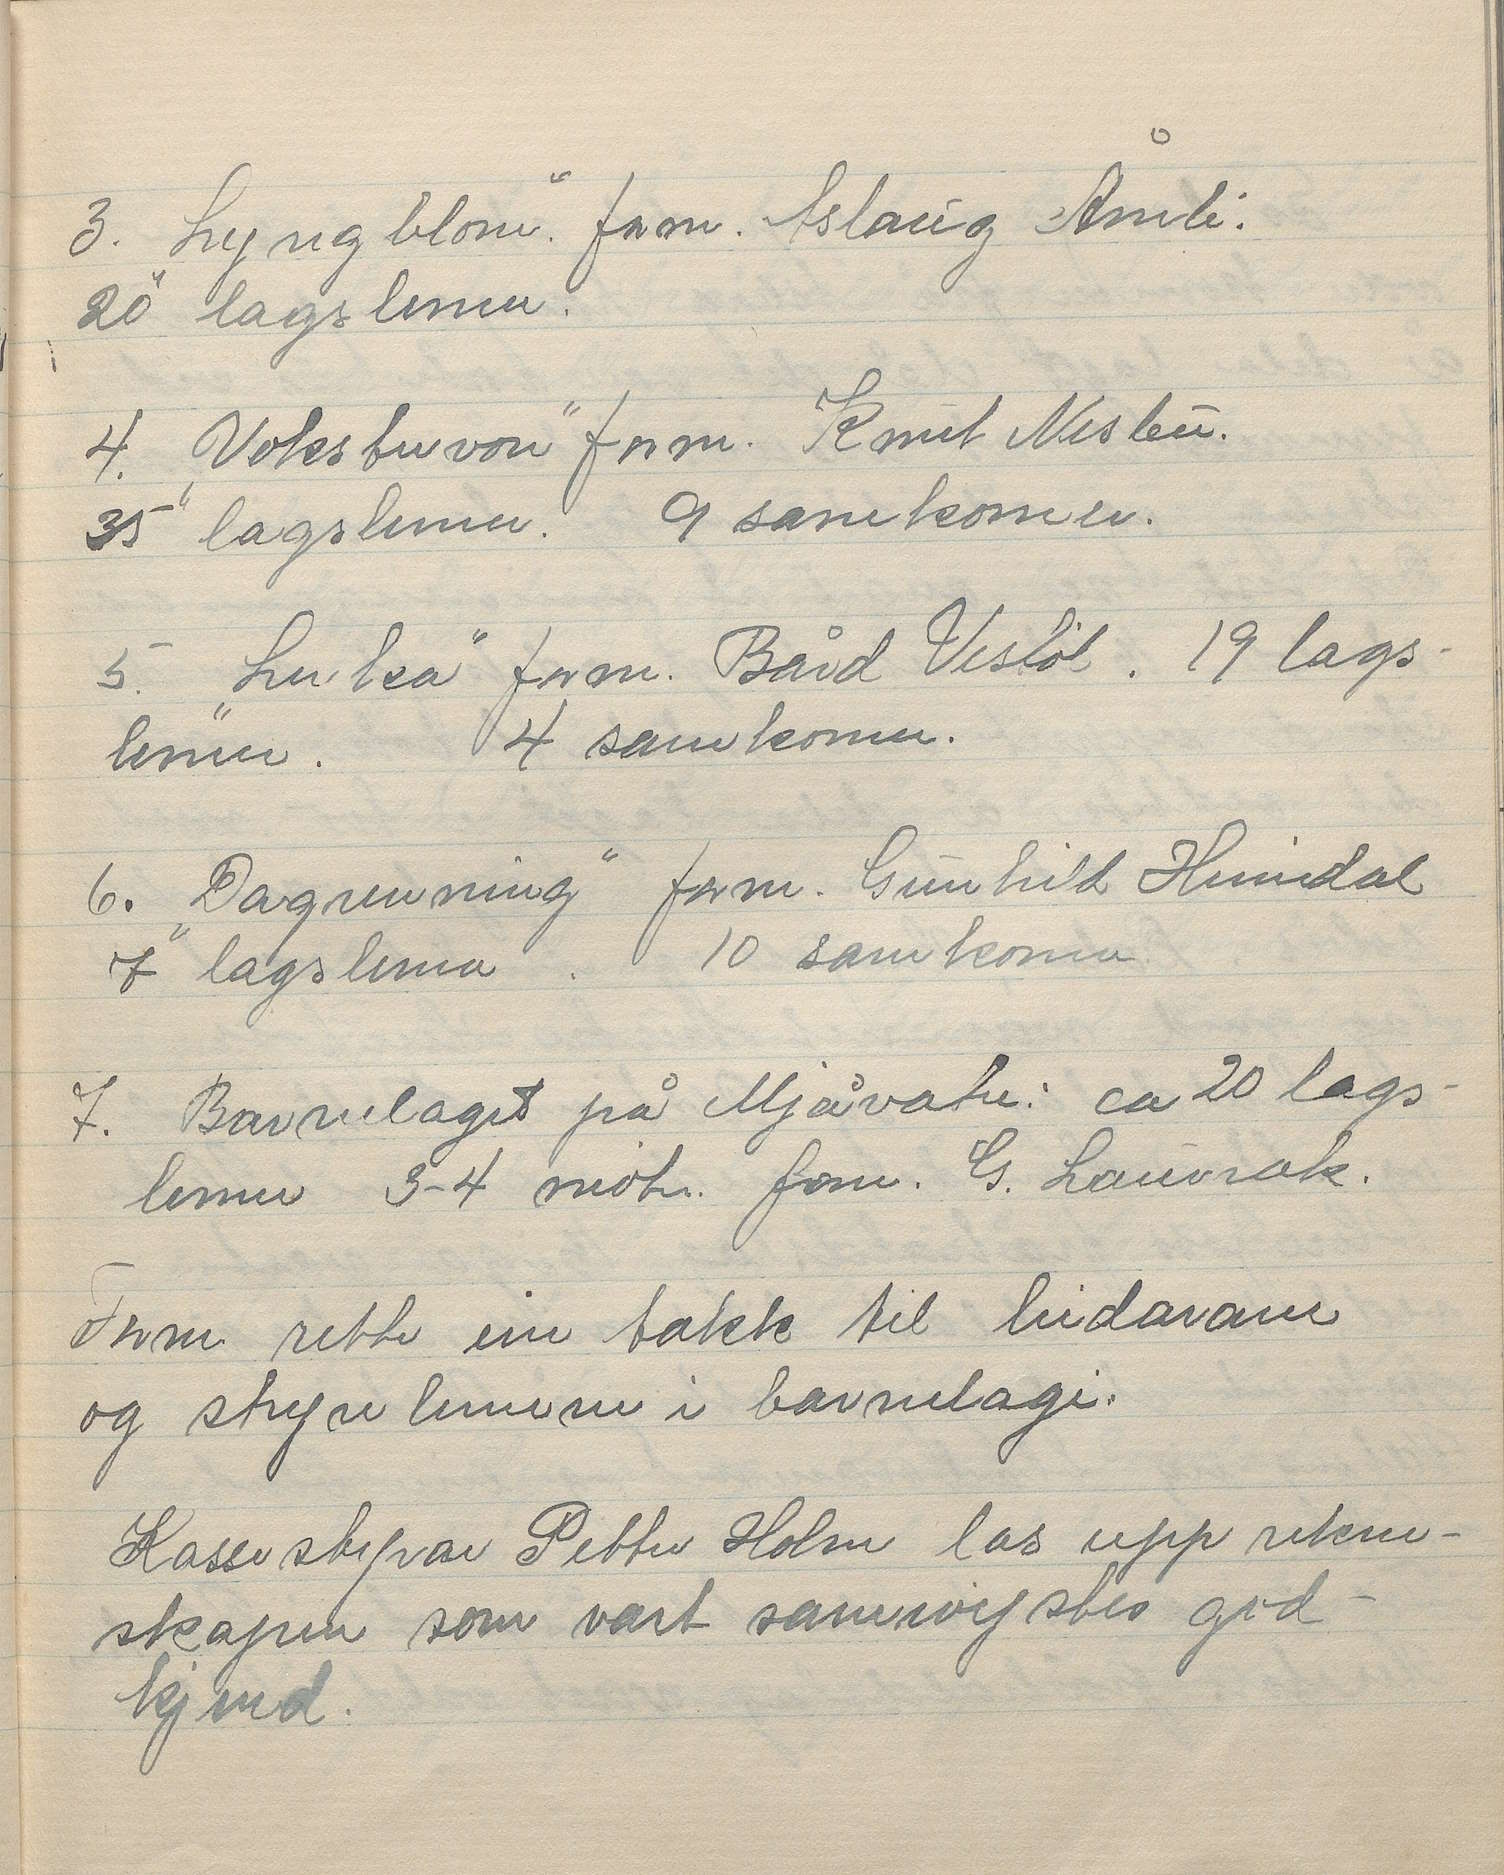 3. „Lyngblom". form. Aslaug Åmli.
20 lagslemer.
4. „Vokstervon" form. Knut Nesleu.
35 lagslemer. 9 samkomer.
5. „Lerka" form. Bård Vesl
öl. 19 lags-
lemer. 4 samkomer.
6. „Dagrenning" form. Gunhild Heimdal
7 lagslemer. 10 samkomer
7. Barnelaget på Mjåvatn: ca 20 lags-
lemer 3-4 möter. form. G. Lauvrak.
Form. rette ein takk til leidarane
og styrelemene i barnelagi.
Kasserstyrar Petter Holm las upp rekne-
skapen som vart samröystes god-
kjend.